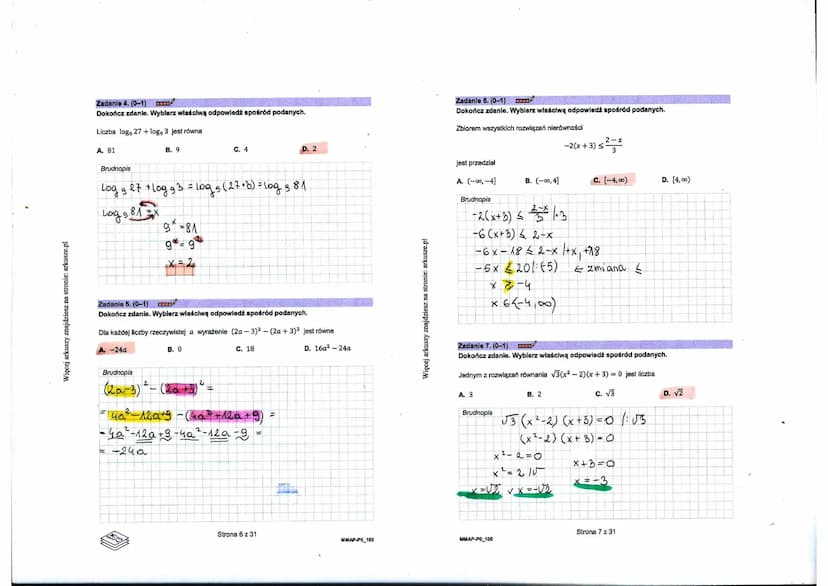 Zadanie 4. (0–1)
Dokończ zdanie. Wybierz właściwą odpowiedź spośród podanych.
Liczba log₉ 27 + log₉ 3 jest równa
A. 81 B. 9 C. 4 D. 2
Brudnopis
log₉ 27 + log₉ 3 = log₉ (27·3) = log₉ 81
log₉ 81 = x
9ˣ = 81
9ˣ = 9²
x = 2
Zadanie 5. (0–1)
Dokończ zdanie. Wybierz właściwą odpowiedź spośród podanych.
Dla każdej liczby rzeczywistej a wyrażenie (2a − 3)² − (2a + 3)² jest równe
A. −24a B. 0 C. 18 D. 16a² − 24a
Brudnopis
(2a−3)² − (2a+3)² =
= 4a²−12a+9 − (4a²+12a+9) =
= 4a²−12a+9−4a²−12a−9 =
= −24a
Strona 6 z 31
MMAP-P0_100
Więcej arkuszy znajdziesz na stronie: arkusze.pl
Zadanie 6. (0–1)
Dokończ zdanie. Wybierz właściwą odpowiedź spośród podanych.
Zbiorem wszystkich rozwiązań nierówności
−2(x + 3) ≤ (2 − x)/3
jest przedział
A. (−∞, −4] B. (−∞, 4] C. [−4, ∞) D. [4, ∞)
Brudnopis
−2(x+3) ≤ (2−x)/3 /·3
−6(x+3) ≤ 2−x
−6x − 18 ≤ 2−x /+x, +18
−5x ≤ 20 /:(−5) ← zmiana ≤
x ≥ −4
x ∈ ⟨−4, ∞)
Zadanie 7. (0–1)
Dokończ zdanie. Wybierz właściwą odpowiedź spośród podanych.
Jednym z rozwiązań równania √3(x² − 2)(x + 3) = 0 jest liczba
A. 3 B. 2 C. √3 D. √2
Brudnopis
√3 (x²−2) (x+3) = 0 /:√3
(x²−2) (x+3) = 0
x²−2=0
x+3=0
x² = 2 /√
x = −3
x=√2 ∨ x=−√2
Strona 7 z 31
MMAP-P0_100
Więcej arkuszy znajdziesz na stronie: arkusze.pl